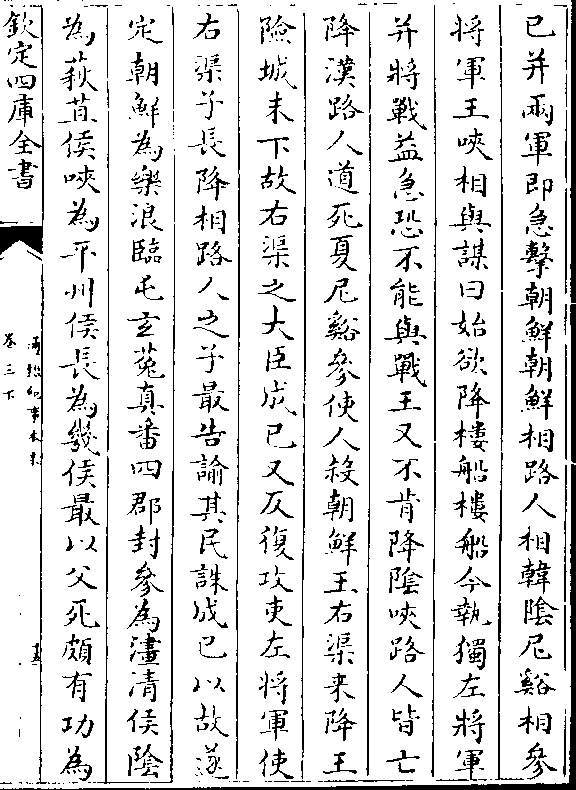 已并兩軍即急擊朝鮮朝鮮相路人相韓陰尼谿相參
將軍王唊相與謀曰始欲降樓船樓船今執獨左將軍
并將戰益急恐不能與戰王又不肯降陰唊路人皆亡
降漢路人道死夏尼谿參使人殺朝鮮王右渠来降王
險城未下故右渠之大臣成已又反復攻吏左將軍使
右渠子長降相路人之子最告諭其民誅成已以故遂
定朝鮮為樂浪臨屯玄菟真番四郡封參為澅清侯陰
為萩苴侯唊為平州侯長為幾侯最以父死頗有功為
欽定四庫全書
卷三下